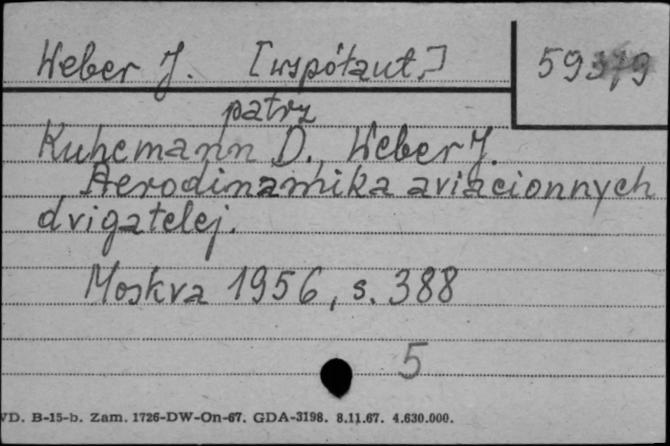 Weber J. [współaut.]
patrz
Kuhemann D., Weber J.
Aerodinamika aviacionnych
dvigatelej.
Moskva 1956, s. 388
5
VD. B-15-b. Zam. 1726-DW-On-67. GDA-3198. 8.11.67. 4.630.000.